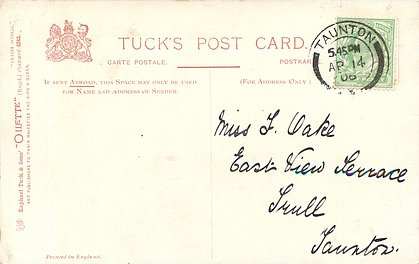 TUCK'S POST CARD.
CARTE POSTALE.
POSTKAR
IF SENT ABROAD, THIS SPACE MAY ONLY BE USED
FOR NAME AND ADDRESS OF SENDER.
(FOR ADDRESS ONLY)
TAUNTON
5.45PM
AP 14
06
Miss F. Oake
East View Terrace
Trull
Taunton.
Printed in England.
Raphael Tuck & Sons' "OILETTE" (Regd.)
ART PUBLISHERS TO THEIR MAJESTIES THE KING & QUEEN